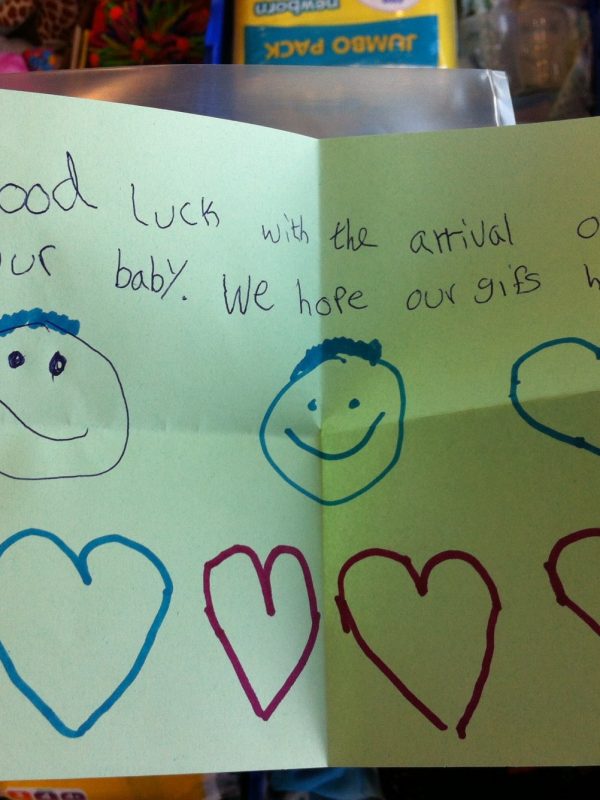 newborn
JUMBO PACK
ood Luck with the arrival o
ur baby. We hope our gifs h